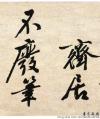 齋居
不廢筆